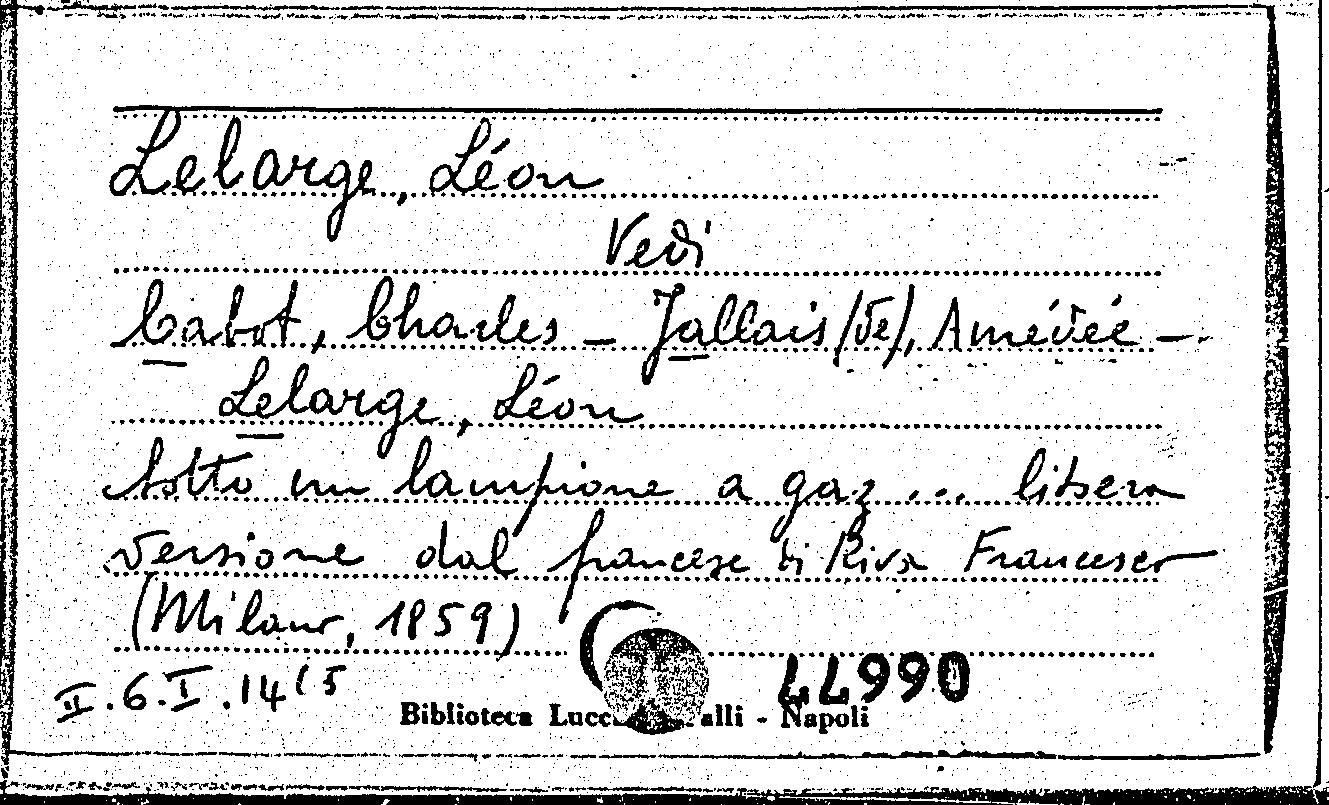 Lelarge, Léon
Vedi
Cabot, Charles – Jallais (de), Amédée –
Lelarge, Léon
Sotto un lampione a gaz ... libera
versione dal francese di Riva Francesco
(Milano, 1859)
II.6.I.14(5
Biblioteca - Napoli